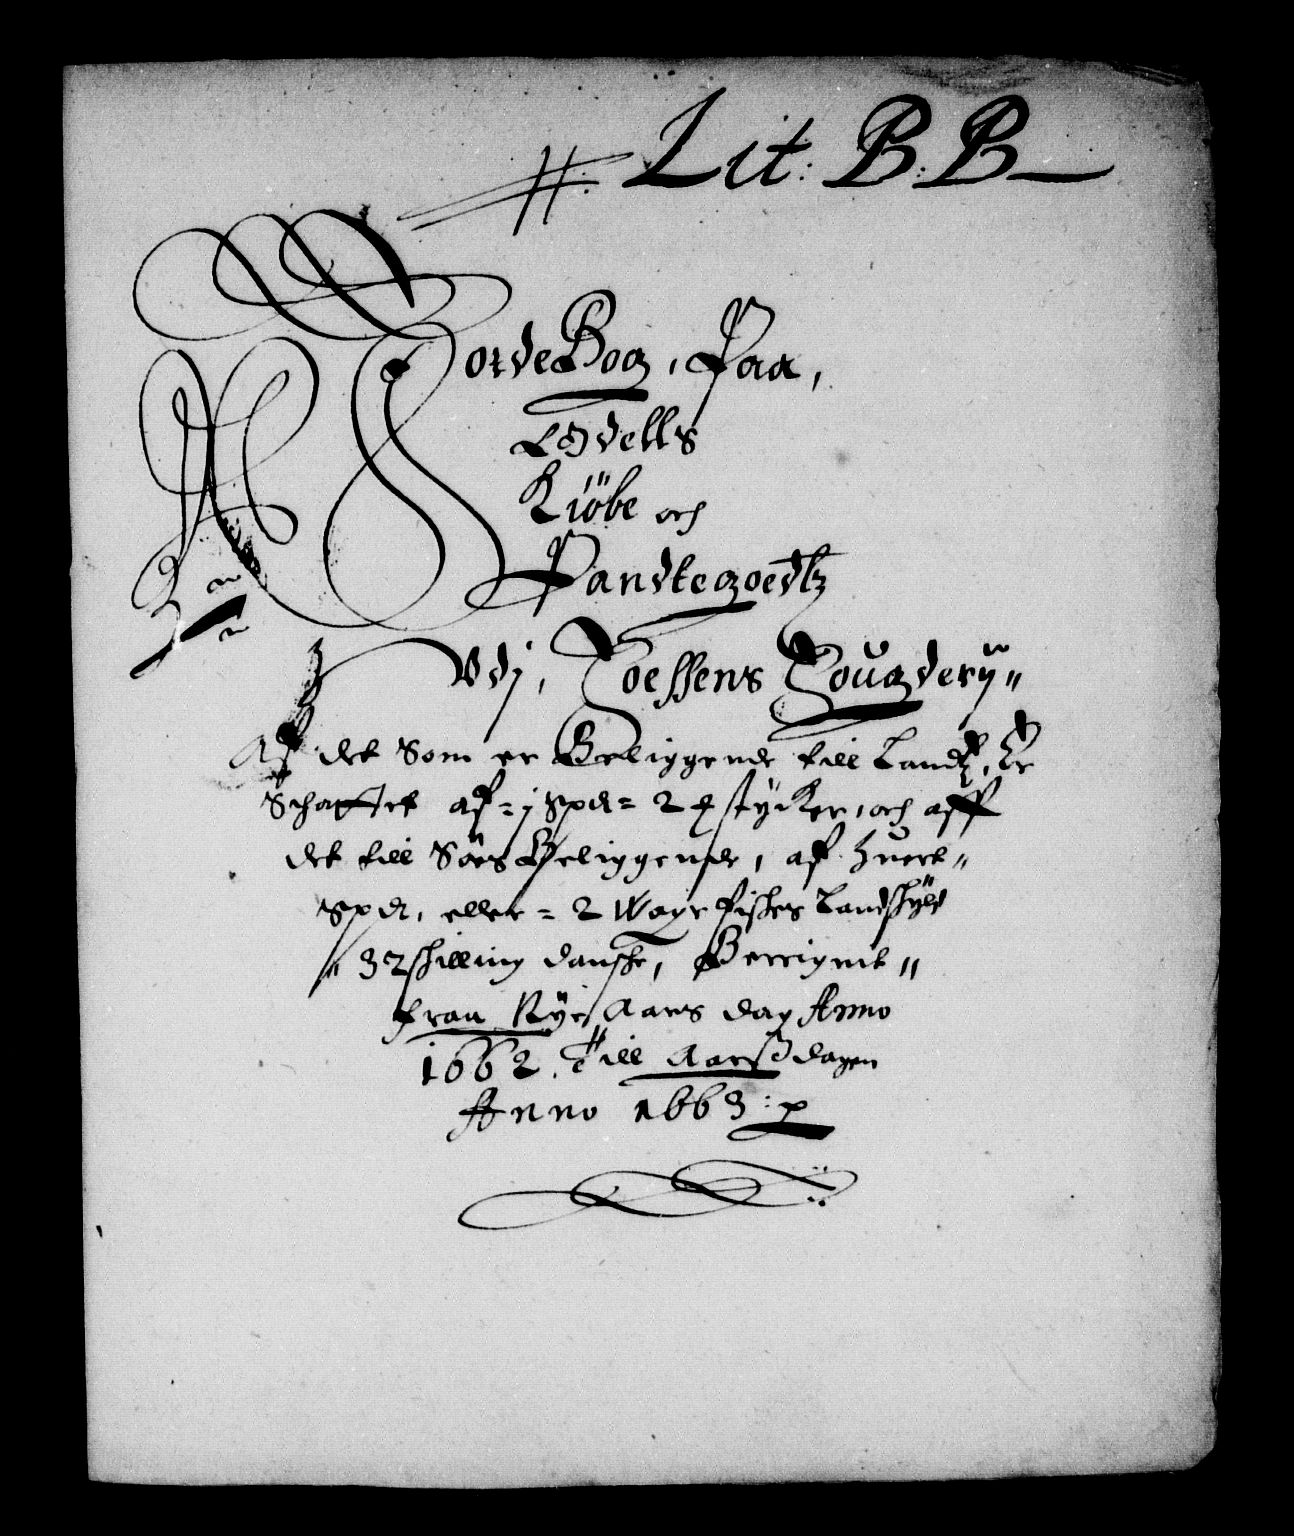 Lit: B: B
JordeBog, Paa,
Odells
Kiöbe och
Pandtegoedtz
Vdj, Foessens Fougderij
Af det Som er Beliggende till Landtz, Er
Schattet af = j Spd = 2 ɖ stÿcker, och aff
det till Söes Beliggende, af huert
Spd, eller = 2 Woge fiskes Landschÿld
32 skilling danske, Berrignet
fraa Nÿe Aars dag Anno
1662. Till Aarsz dagen
Anno 1663: